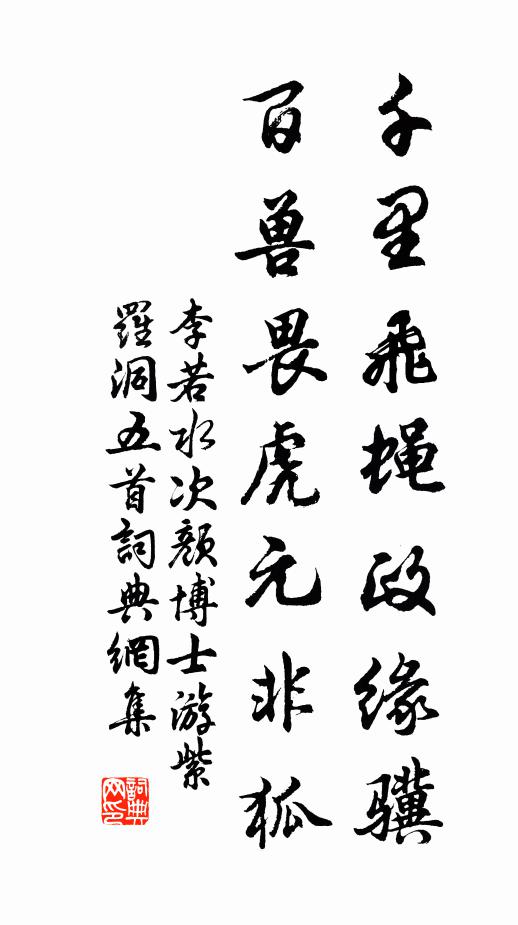 千里飛蝇政缘骥
百兽畏虎元非狐
李若水次颜博士游紫
羅洞五首詞典網集
詞典网印